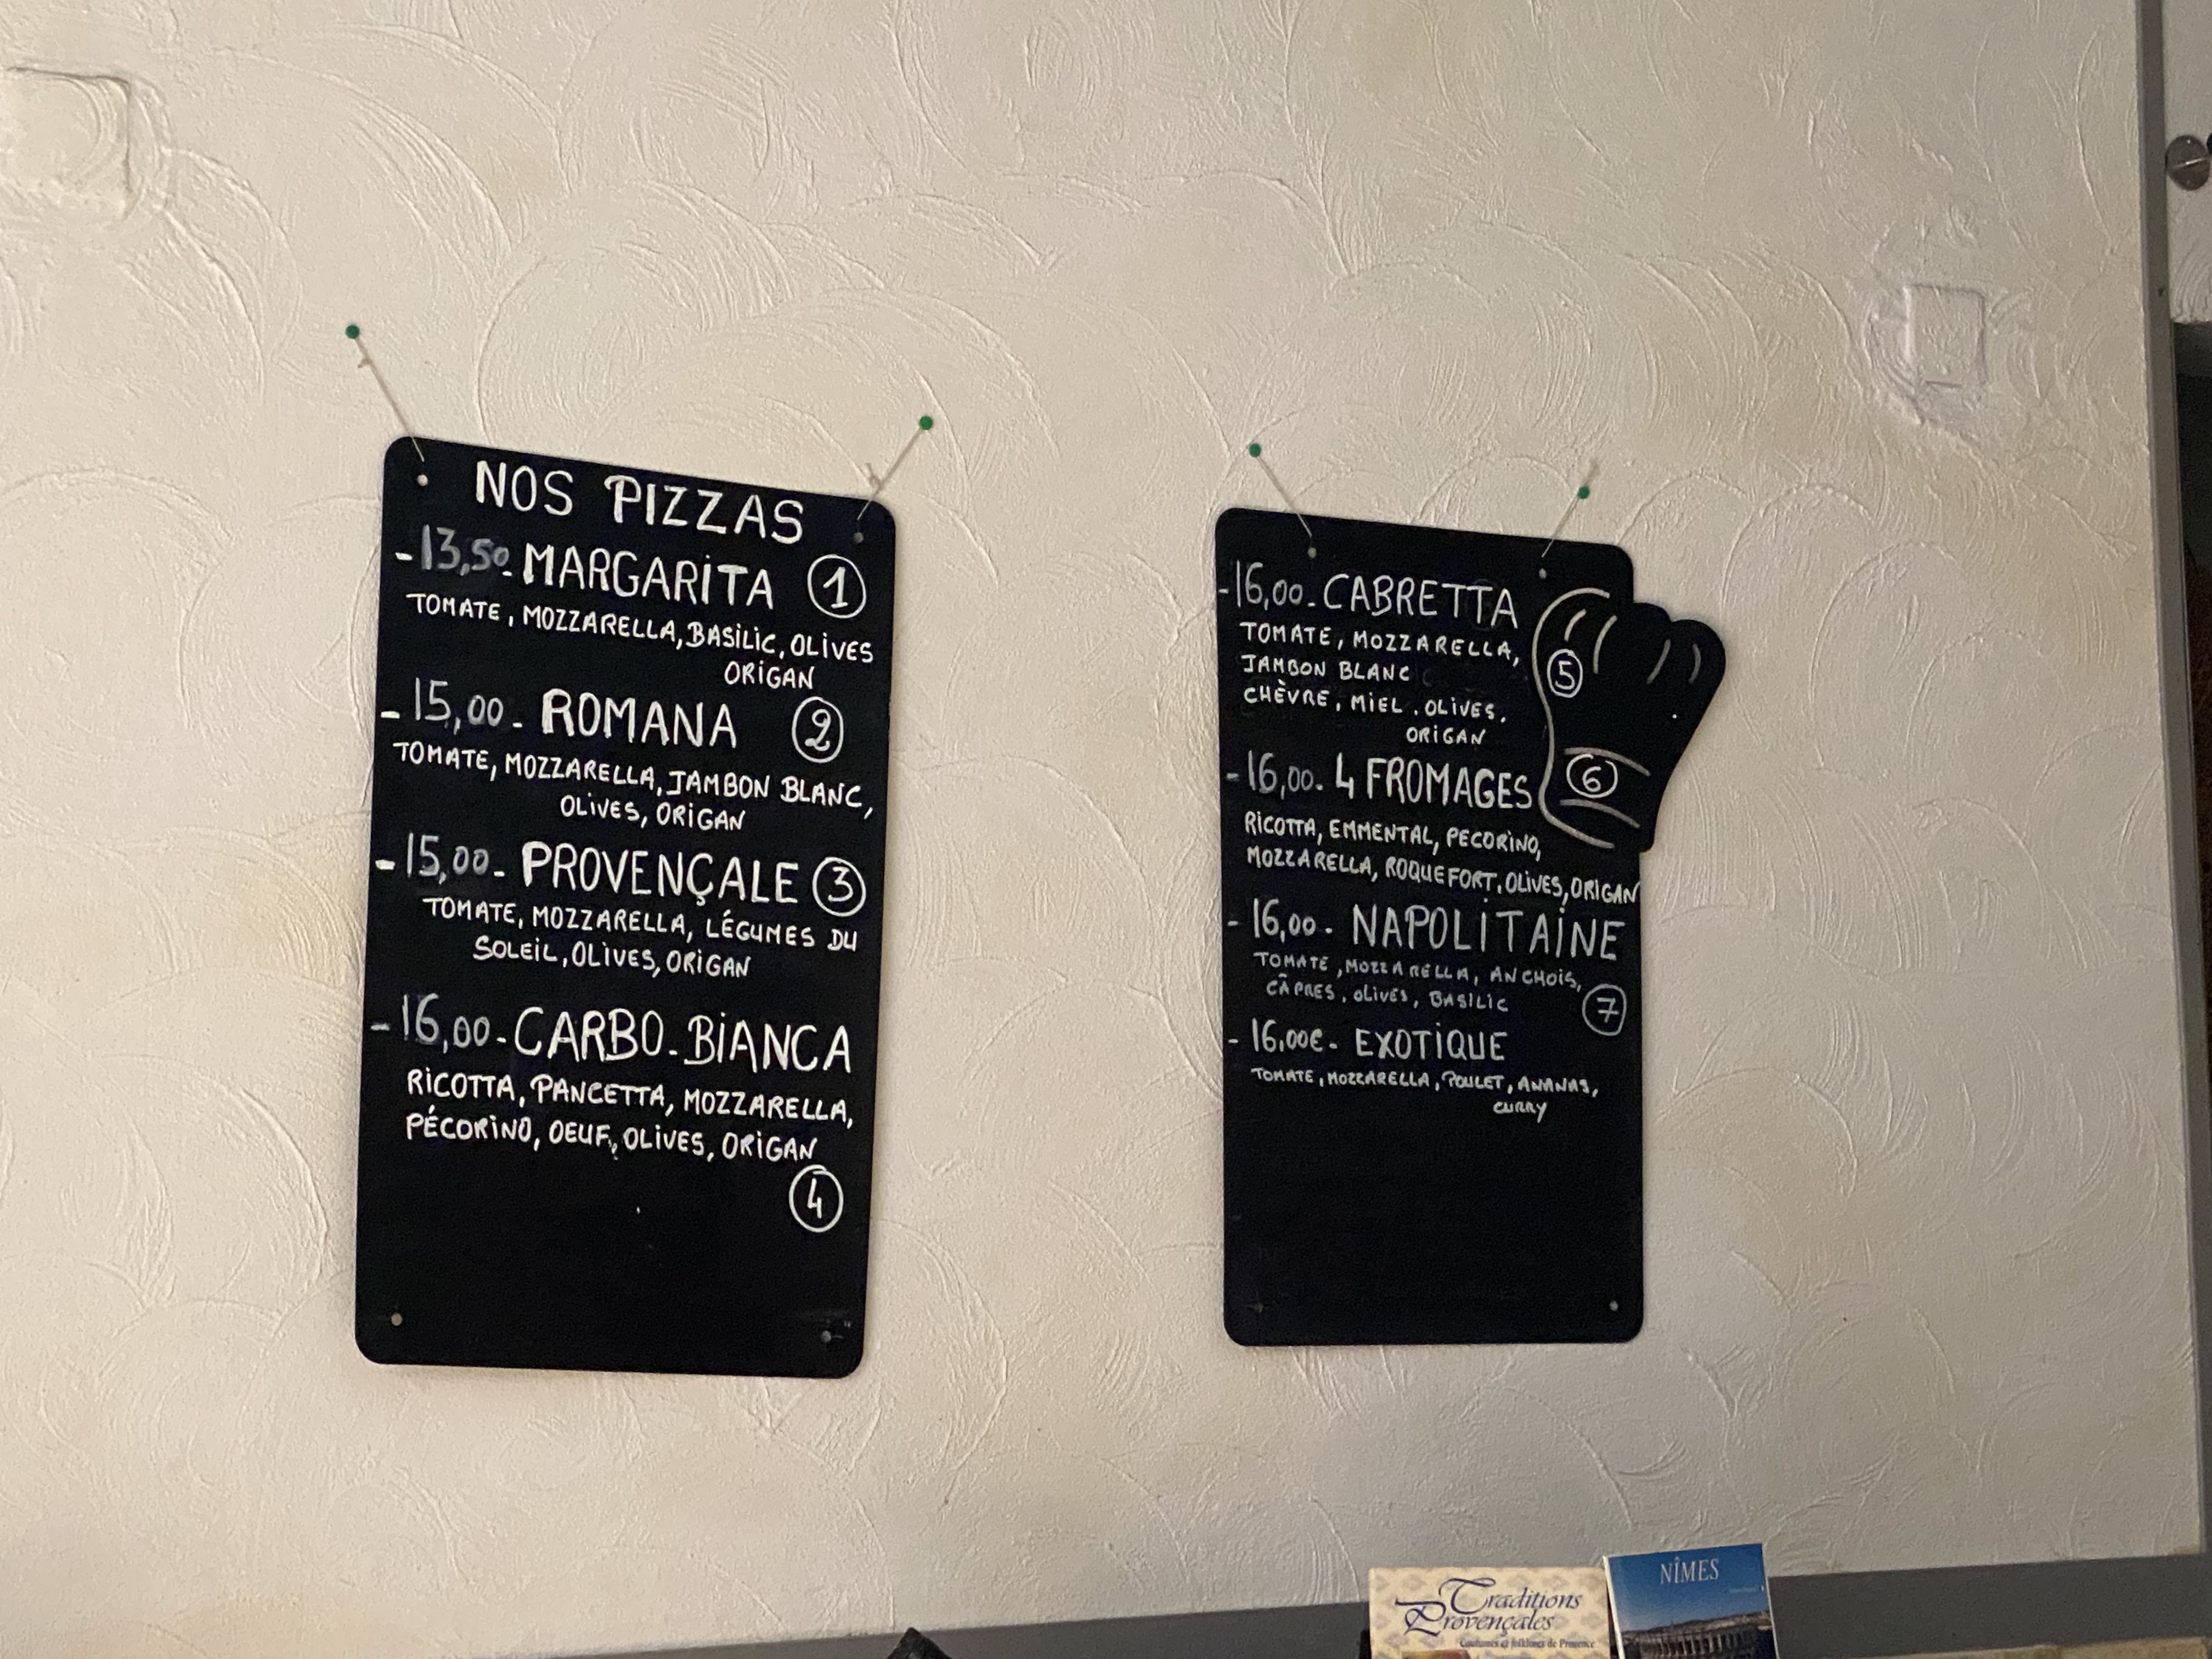 NOS PIZZAS
- 13,50 - MARGARITA 1
TOMATE, MOZZARELLA, BASILIC, OLIVES
ORIGAN
- 15,00 - ROMANA 2
TOMATE, MOZZARELLA, JAMBON BLANC,
OLIVES, ORIGAN
- 15,00 - PROVENÇALE 3
TOMATE, MOZZARELLA, LÉGUMES DU
SOLEIL, OLIVES, ORIGAN
- 16,00 - CARBO-BIANCA
RICOTTA, PANCETTA, MOZZARELLA,
PÉCORINO, OEUF, OLIVES, ORIGAN
4
- 16,00 - CABRETTA
TOMATE, MOZZARELLA,
JAMBON BLANC 5
CHÈVRE, MIEL, OLIVES,
ORIGAN
- 16,00 - 4 FROMAGES 6
RICOTTA, EMMENTAL, PECORINO,
MOZZARELLA, ROQUEFORT, OLIVES, ORIGAN
- 16,00 - NAPOLITAINE
TOMATE, MOZZARELLA, ANCHOIS,
CÂPRES, OLIVES, BASILIC 7
- 16,00€ - EXOTIQUE
TOMATE, MOZZARELLA, POULET, ANANAS,
CURRY
Traditions
Provençales
Coutumes et folklores de Provence
NÎMES